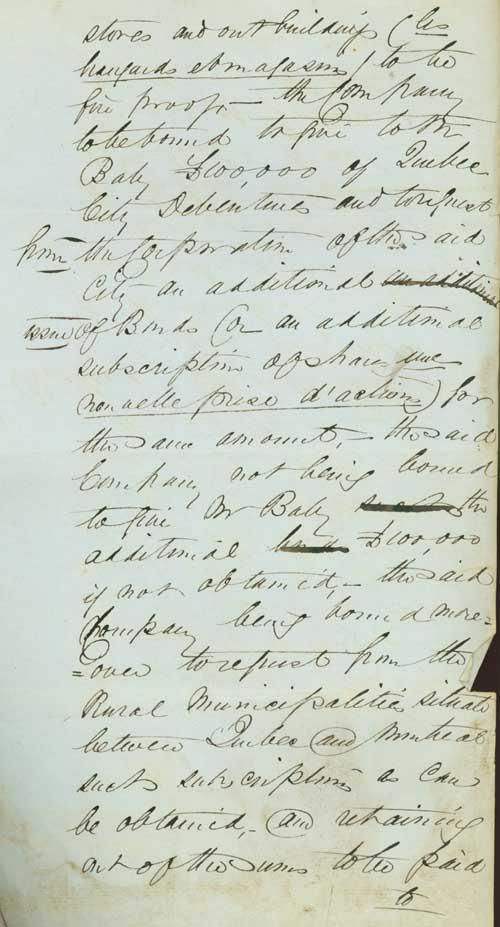 stores and outbuildings (les
hangards et magasins) to be
fire proof, – the Company
to be bound to give to Mr
Baby £100,000 of Quebec
City Debentures and to request
from the Corporation of the said
City an additional an additional
issue of Bonds (or an additional
subscription of shares une
nouvelle prise d'actions) for
the same amount, – the said
Company not being bound
to give Mr Baby such the
additional bonds £100,000
if not obtained, – the said
Company being bound more=
=over to request from the
Rural Municipalities situate
between Quebec and Montreal
such subscriptions as can
be obtained, – and retaining
out of the sums to be paid
to